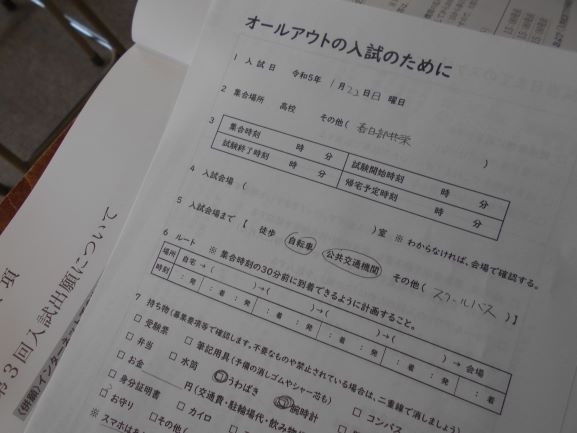 オールアウトの入試のために
1 入試日 令和5年 1月22日日曜日
2 集合場所 高校 その他( 春日部共栄 )
3 集合時刻 時 分 試験開始時刻 時 分
試験終了時刻 時 分 帰宅予定時刻 時 分
4 入試会場 ( )室 ※ わからなければ、会場で確認する。
5 入試会場まで 【 徒歩 自転車 公共交通機関 その他( スクールバス )】
6 ルート ※ 集合時刻の30分前に到着できるように計画すること。
場所 自宅 → ( )→( )→( )→( )→ 会場
時刻 : 発 : 着 : 発 : 着 : 発 : 着 : 発 : 着 : 発 : 着
7 持ち物(募集要項等で確認します。不要なものや禁止されている場合は、二重線で消しましょう)
□ 受験票 □ 筆記用具(予備の消しゴムやシャー芯も) □ コンパス
□ 弁当 □ 水筒 □ うわばき □ 腕時計
□ お金 円(交通費・駐輪場代・飲み物
□ 身分証明書 □ カイロ
□ お守り □ その他(
※ スマホはあ
項
第3回入試出願について